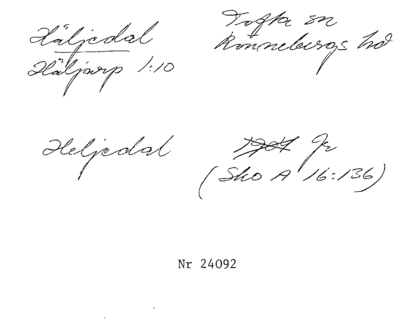 Häljedal Tofta sn
Häljarp 1:10 Rönnebergs hd
Heljedal 1907 Jr
(Sko A 16:136)
Nr 24092